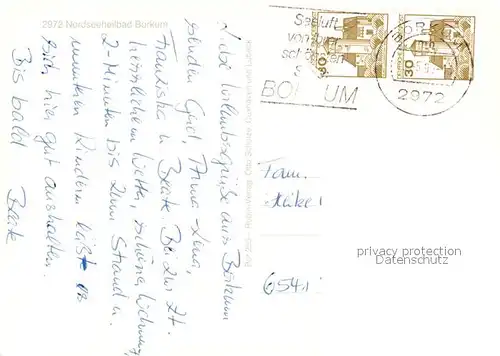 2972 Nordseeheilbad Borkum
Liebe Urlaubsgrüße aus Borkum
senden Euch, Anna-Lena,
Franziska u. Beate. Bei zur Zt.
herrlichem Wetter, schöne Wohnung,
2-Minuten bis zum Strand u.
munteren Kindern läßt es
sich hier gut aushalten.
Bis bald
Beate
Seeluft
von
BORKUM
2972
30
30
Fam.
654
privacy protection
Datenschutz